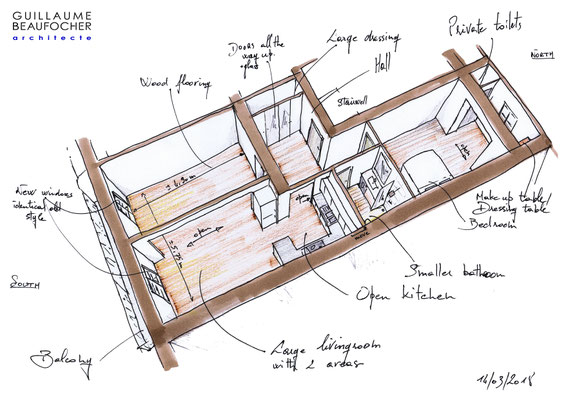 GUILLAUME
BEAUFOCHER
architecte
Doors all the
way up.
glass
Large dressing
Hall
Private toilets
NORTH
Wood flooring
Stairwell
New windows
identical old
style
open
open
Make up table/
Dressing table
Bedroom
SOUTH
Smaller bathroom
Open kitchen
Balcony
Large livingroom
with 2 areas
14/03/2018